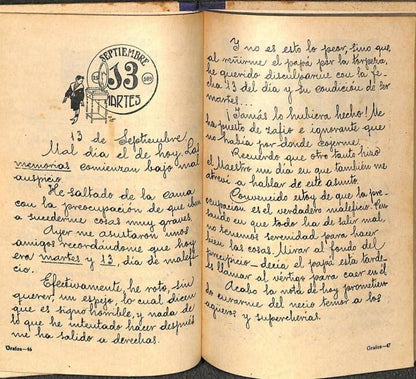 SEPTIEMBRE
13
MARTES
13 de Septiembre
Mal día el de hoy. Las
memorias comienzan bajo mal
auspicio.
He saltado de la cama
con la preocupación de que iban
a sucederme cosas muy graves.
Ayer me asustaron unos
amigos recordándome que hoy
era martes y 13, día de malefi-
cio.
Efectivamente, he roto, sin
querer, un espejo, lo cual dicen
que es signo horrible, y nada de
lo que he intentado hacer después
me ha salido a derechas.
Grafos—46
Y no es esto lo peor, sino que
al reñirme el papá por la torpeza,
he querido disculparme con la fe-
cha 13 del día y su condición de ser
martes...
¡Jamás lo hubiera hecho! Me
ha puesto de zafio e ignorante que
no había por donde cojerme.
Recuerdo que otro tanto hizo
el Maestro un día en que también me
atreví a hablar de este asunto.
Convencido estoy de que la pre-
ocupación es el verdadero maleficio. Pen-
sando en que todo ha de salir mal,
no tenemos serenidad para hacer
bien las cosas. Mirar al fondo del
precipicio—decía el papá esta tarde—
es llamar al vértigo para caer en él.
Acabo la nota de hoy prometien-
do curarme del necio temor a los
agüeros y supercherías.
Grafos—47